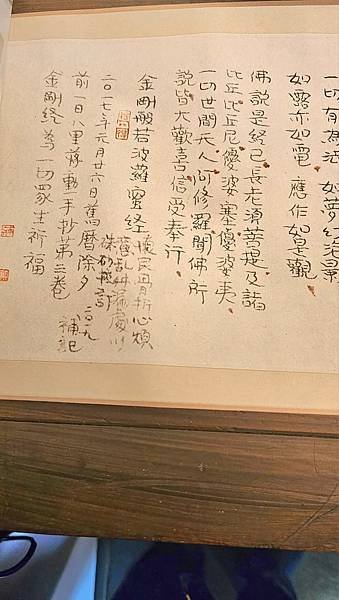 一切有為法 如夢幻泡影
如露亦如電 應作如是觀
佛說是經已長老須菩提及諸
比丘比丘尼優婆塞優婆夷
一切世間天人阿修羅聞佛所
說皆大歡喜信受奉行
金剛般若波羅蜜經
心煩
意亂
二〇一七年元月廿六日舊曆除夕
前一日八里蔣勳手抄第三卷
金剛經為一切眾生祈福
二〇一九
補記